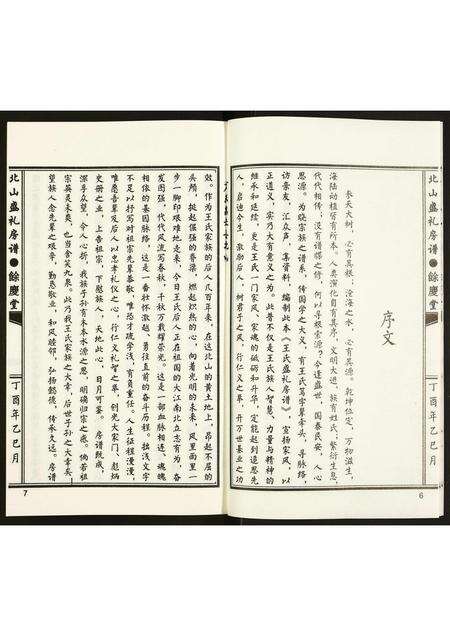 北山盛礼房谱●餘慶堂
丁酉年乙巳月
6
序文
参天大树，必有其根；滢海之水，必有其源。乾坤位定，万物滋生，
海陆动植皆有所本，人类演化自有其序。文明大进，族有姓氏；繁衍生息，
代代相传；没有谱牒之修，何以寻根索源？今逢盛世，国泰民安，人心
思源。为晓宗族之谱系，传国学之大义，有王氏笃宇辈牵头，寻脉络，
访亲友，汇众声，集资料，编制此本《王氏盛礼房谱》，宣扬家风，以
正道义，实乃大有意义之为。此善不仅是王氏族人智慧、力量与精神的
继承和延续，更是王氏一门家风、家魂的砥砺和升华，定能起到追思先
人，启迪今生，激励后人，树君子之风，行仁义之举，开万世基业之功
效。作为王氏家族的后人几百年来，在这北山的黄土地上，昂起不屈的
头颅，挺起倔强的脊梁，燃起炽热的心，向着光明的未来，风里雨里一
步一脚印艰难地走来。今日王氏后人正在祖国的大江南北立志有为，奋
发图强，代代风流写春秋，千秋万载耀荣光。这是一部血脉相连、魂魄
相依的基因脉络，这是一番壮怀激越、勇往直前的奋斗历程。拙浅文字
不足以抒写对祖宗先辈恭敬，唯恐才疏学浅，有负重任。人生征程漫漫，
唯愿吾辈及后人以忠孝礼仪之心，行仁义礼智之举，创光大家门、彪炳
史册之业，上告祖宗，下慰族人，天地此心，日月可鉴。房谱既成，
深孚众望，令人心折，我族子孙有木本水源之思，明确归宗之感。倘若祖
宗英灵未爽，也当含笑九泉。此乃我王氏家族之大幸，后世子孙之大幸矣！
望族人念先辈之艰辛，勤恳敬业，和睦邻，弘扬懿德，传承久远。房谱
北山盛礼房谱●餘慶堂
丁酉年乙巳月
7